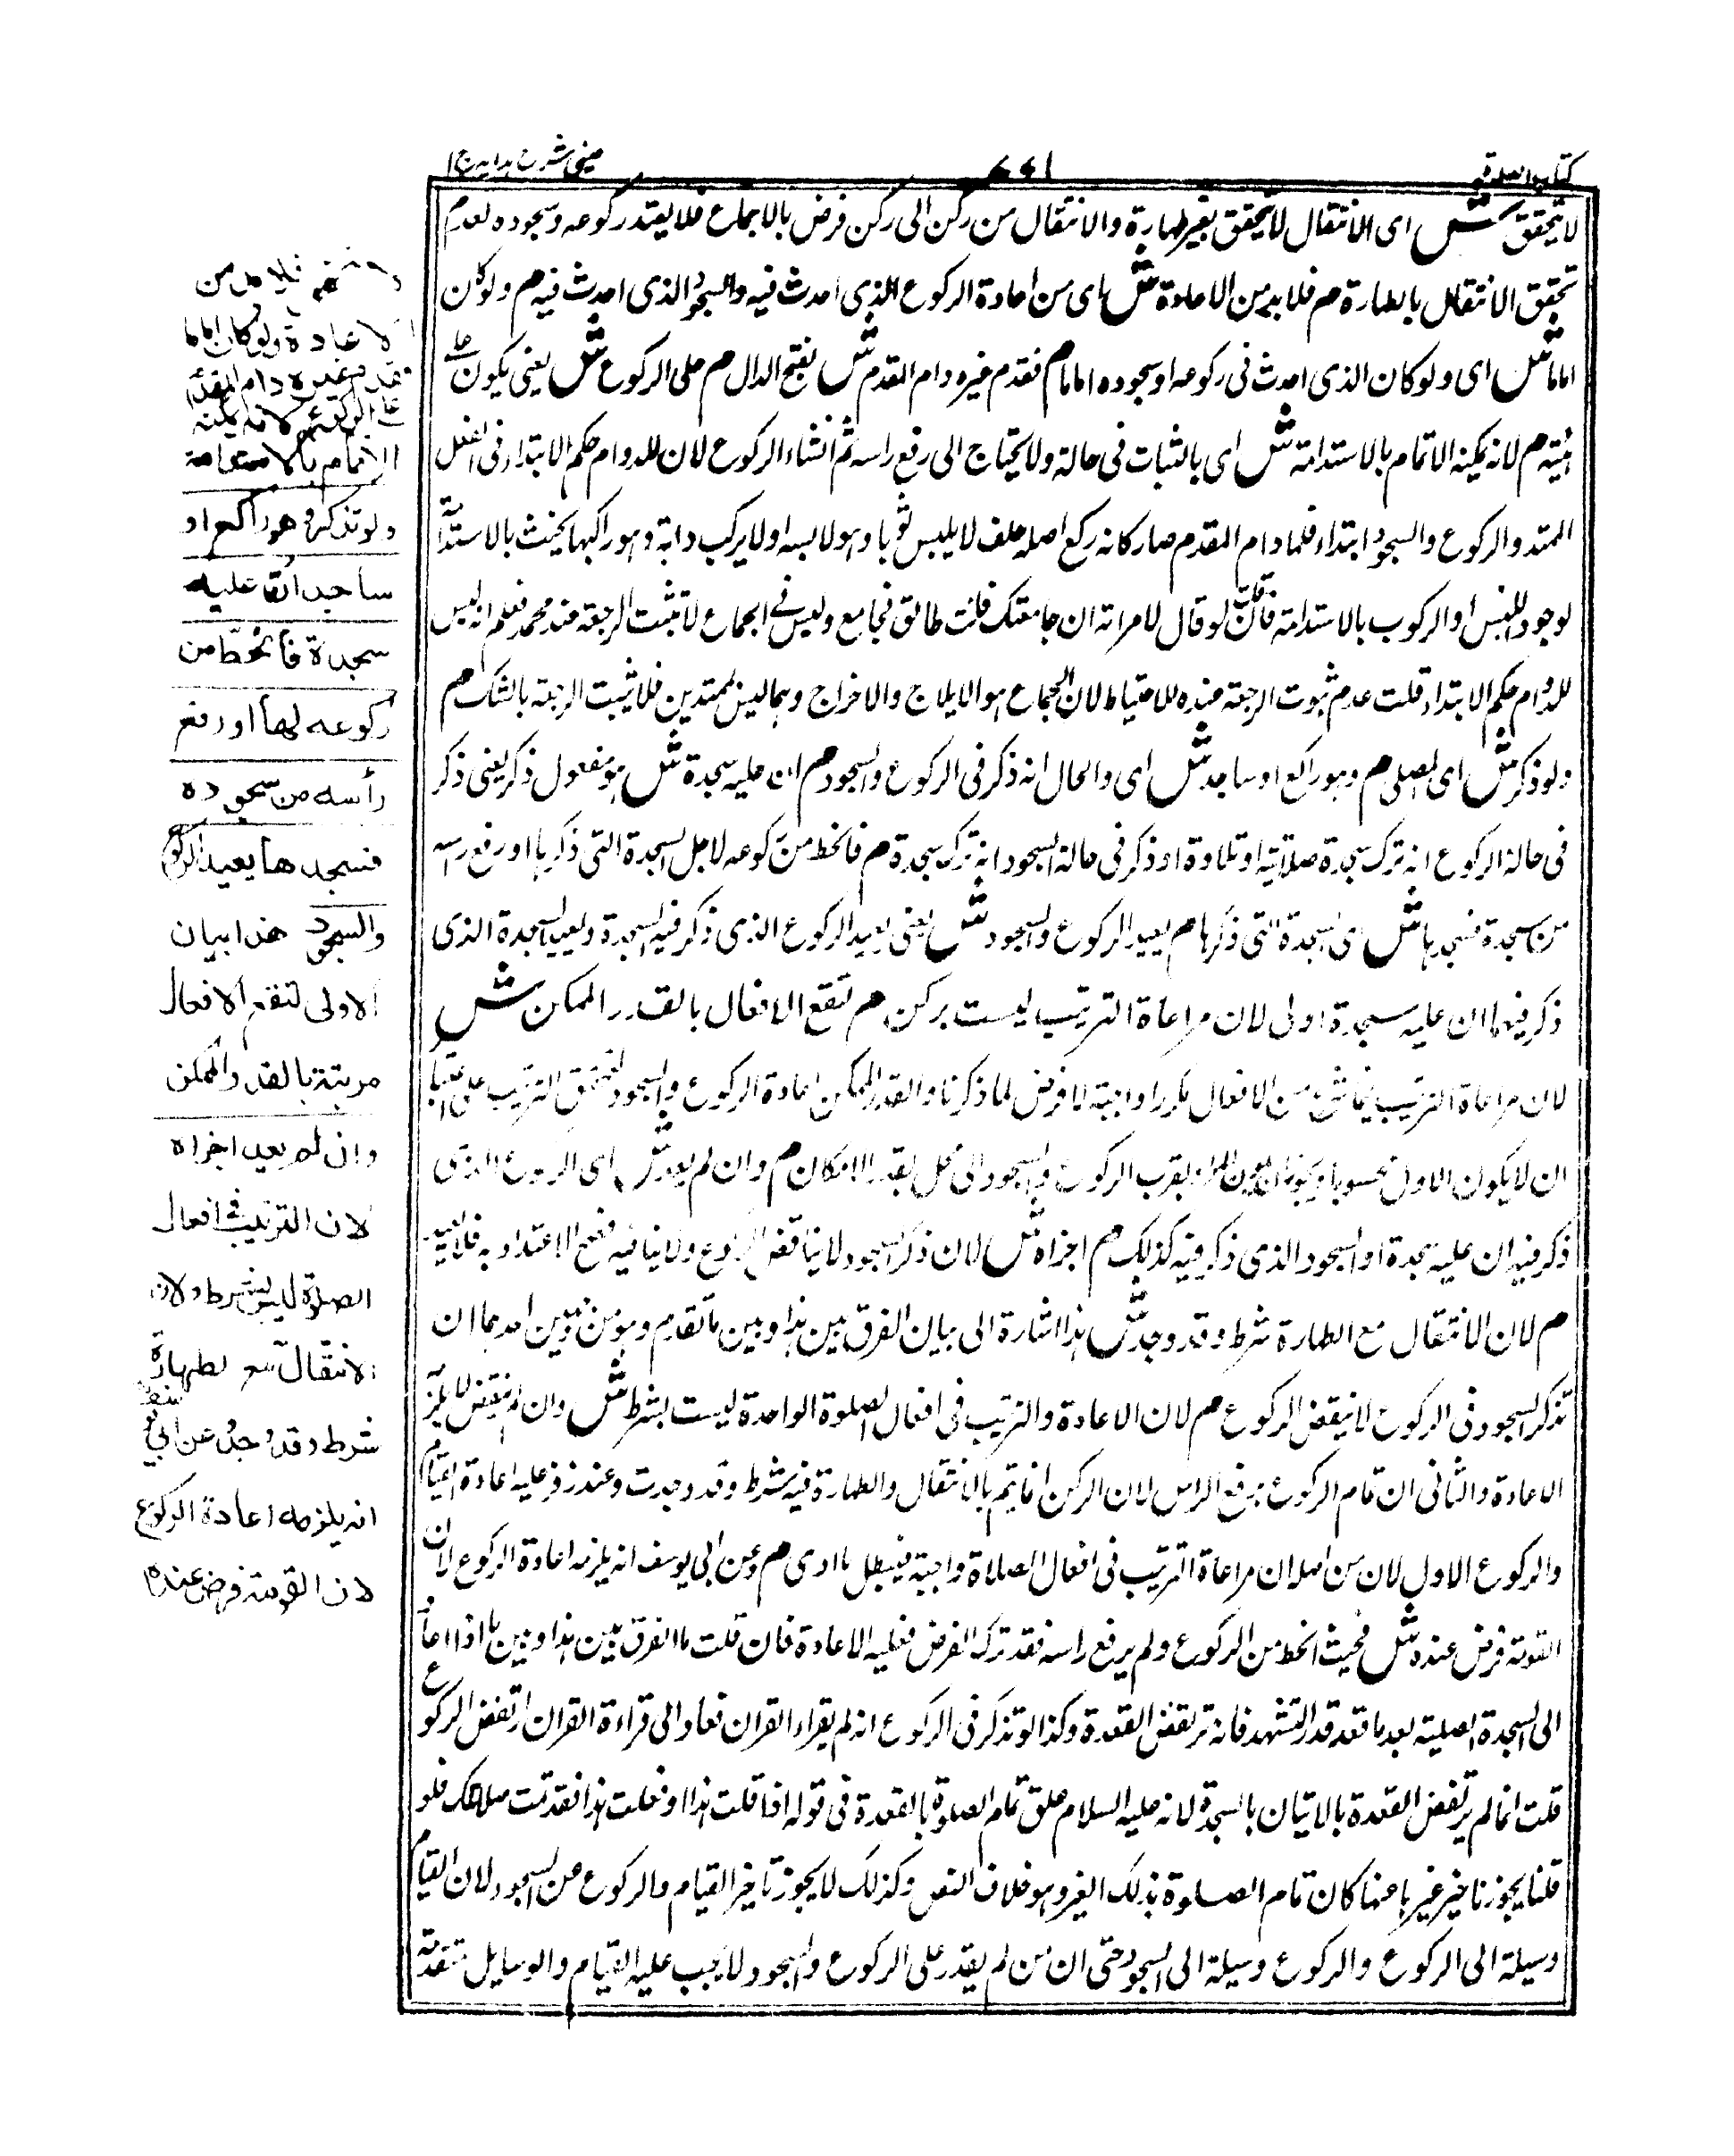 كتاب الصلوة
٧٧١
عينى شرح هدايه ج ١
لا يتحقق ش اى الانتقال لا يتحقق بغير طهارة والانتقال من ركن الى ركن فرض بالاجماع فلا يعتد ركوعه وسجوده لعدم
تحقق الانتقال بالطهارة م فلابد من الاعادة ش اى من اعادة الركوع الذى احدث فيه والسجود الذى احدث فيه م ولو كان
اماما ش اى ولو كان الذى احدث فى ركوعه او سجوده اماما م فقدم غيره دام المقدم ش بفتح الدال م على الركوع ش يعنى يكون على
هيئته م لانه يمكنه الاتمام بالاستدامة ش اى بالثبات فى حالة ولا يحتاج الى رفع راسه ثم انشاء الركوع لان للدوام حكم الابتداء فى الفعل
الممتد والركوع والسجود ابتداء فلما دام المقدم صار كانه ركع اصله حلف لا يلبس ثوبا وهو لابسه اولا يركب دابة وهو راكبها يحنث بالاستدامة
لوجود اللبس او الركوب بالاستدامة فان قلت لو قال لامراته ان جامعتك فانت طالق فجامع ولبس فى الجماع لا تثبت الرجعة عند محمد فعلم انه ليس
للدوام حكم الابتداء قلت عدم ثبوت الرجعة عنده للاحتياط لان الجماع هو الايلاج والاخراج وهما ليس بممتدين فلا يثبت الرجعة بالشك م
ولو ذكر ش اى المصلى م وهو راكع او ساجد ش اى والحال انه ذكر فى الركوع والسجود م ان عليه سجدة ش هو مفعول ذكر يعنى ذكر
فى حالة الركوع انه ترك سجدة صلاتية او تلاوة او ذكر فى حالة السجود انه ترك سجدة م فانحط من ركوعه لاجل السجدة التى ذكرها او رفع راسه
من سجدة فسجدها ش اى السجدة التى ذكرها م يعيد الركوع والسجود ش يعنى يعيد الركوع الذى ذكر فيه السجدة ويعيد السجدة الذى
ذكر فيهما ان عليه سجدة اولى لان مراعاة الترتيب ليست بركن م لتقع الافعال بالقدر الممكن ش
لان مراعاة الترتيب فيما شرع من الافعال مكررا واجبة لا فرض لما ذكرنا والقدر الممكن اعادة الركوع والسجود لتحقق الترتيب على اعتبار
ان لا يكون الاول محسوبا ويجوز ان يكون المراد بقرب الركوع والسجود الى محل بقدر الامكان م وان لم يعد ش اى الركوع الذى
ذكر فيه ان عليه سجدة او السجود الذى ذكر فيه كذلك م اجزاه ش لان ذكر السجود لا يناقض الركوع ولا ينافيه فصح الاعتداد به فلا يعيد
م لان الانتقال مع الطهارة شرط وقد وجد ش هذا اشارة الى بيان الفرق بين هذا وبين ما تقدم وهو من وجهين احدهما ان
تذكر السجود فى الركوع لا ينقض الركوع م لان الاعادة والترتيب فى افعال الصلوة الواحدة ليست بشرط ش وان لم ينتقض لا يلزم
الاعادة والثانى ان تمام الركوع برفع الراس لان الركن انما يتم بالانتقال والطهارة فيه شرط وقد وجدت وعند زفر عليه اعادة القيام
والركوع الاول لان من اصله ان مراعاة الترتيب فى افعال الصلاة واجبة فيبطل ما ادى م وعن ابى يوسف انه يلزمه اعادة الركوع لان
القومة فرض عنده ش فحيث انحط من الركوع ولم يرفع راسه فقد ترك الفرض فعليه الاعادة فان قلت ما الفرق بين هذا وبين ما اذا عاد
الى السجدة الصلبية بعد ما قعد قدر التشهد فانه ترتفض القعدة وكذا لو تذكر فى الركوع انه لم يقراء القران فعاد الى قراءة القران ارتفض الركوع
قلت انما لم يرتفض القعدة بالاتيان بالسجدة لانه عليه السلام علق تمام الصلوة بالقعدة فى قوله اذا قلت هذا او فعلت هذا فقد تمت صلاتك فلو
قلنا يجوز تاخير غيرها عنها كان تمام الصلوة بذلك الغير وهو خلاف النص وكذلك لا يجوز تاخير القيام والركوع عن السجود لان القيام
وسيلة الى الركوع والركوع وسيلة الى السجود حتى ان من لم يقدر على الركوع والسجود لا يجب عليه القيام والوسايل متقدمة
فلابد من
الاعادة ولو كان اماما
فقدم غيره دام المقدم
على الركوع لانه يمكنه
الاتمام بالاستدامة
ولو تذكر وهو راكع او
ساجد ان عليه
سجدة فانحط من
ركوعه لها او رفع
رأسه من سجوده
فسجدها يعيد الركوع
والسجود هذا بيان
الاولى لتقع الافعال
مرتبة بالقدر الممكن
وان لم يعد اجزاه
لان الترتيب فى افعال
الصلوة ليس بشرط ولان
الانتقال مع الطهارة
شرط وقد وجد وعن ابى يوسف
انه يلزمه اعادة الركوع
لان القومة فرض عنده